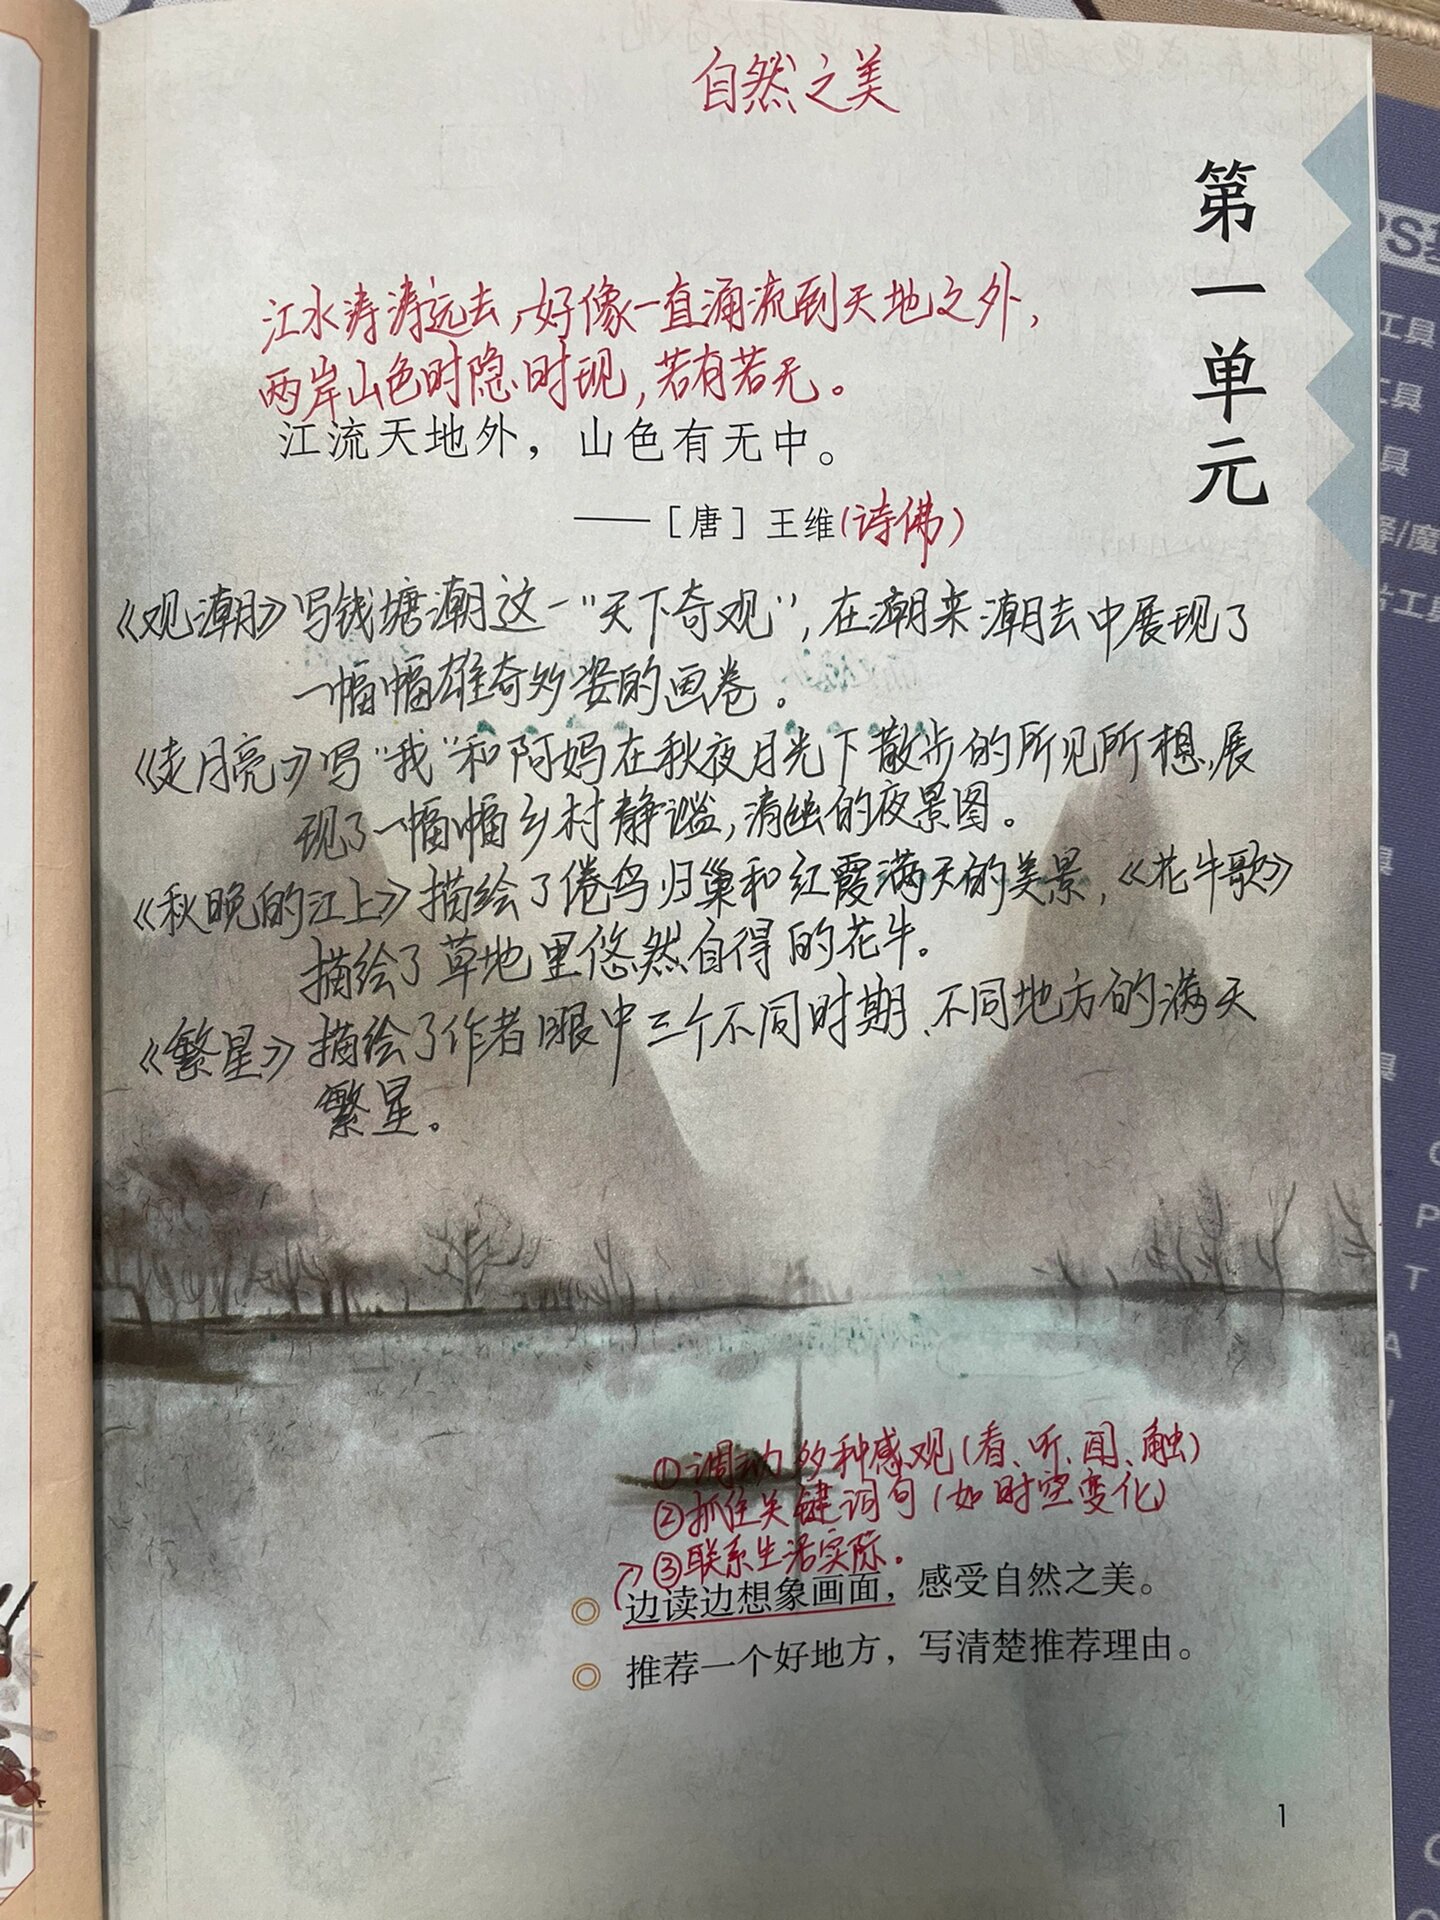 自然之美
第一单元
江水涛涛远去,好像一直涌流到天地之外,
两岸山色时隐时现,若有若无。
江流天地外，山色有无中。
——［唐］王维(诗佛)
《观潮》写钱塘潮这一"天下奇观",在潮来潮去中展现了
一幅幅雄奇妙姿的画卷。
《走月亮》写"我"和阿妈在秋夜月光下散步的所见所想,展
现了一幅幅乡村静谧,清幽的夜景图。
《秋晚的江上》描绘了倦鸟归巢和红霞满天的美景,《花牛歌》
描绘了草地里悠然自得的花牛。
《繁星》描绘了作者眼中三个不同时期、不同地方的满天
繁星。
①调动多种感观(看、听、闻、触)
②抓住关键词句(如时空变化)
③联系生活实际。
◎ 边读边想象画面，感受自然之美。
◎ 推荐一个好地方，写清楚推荐理由。
1
工具
工具
具
工具
具
P
T
A